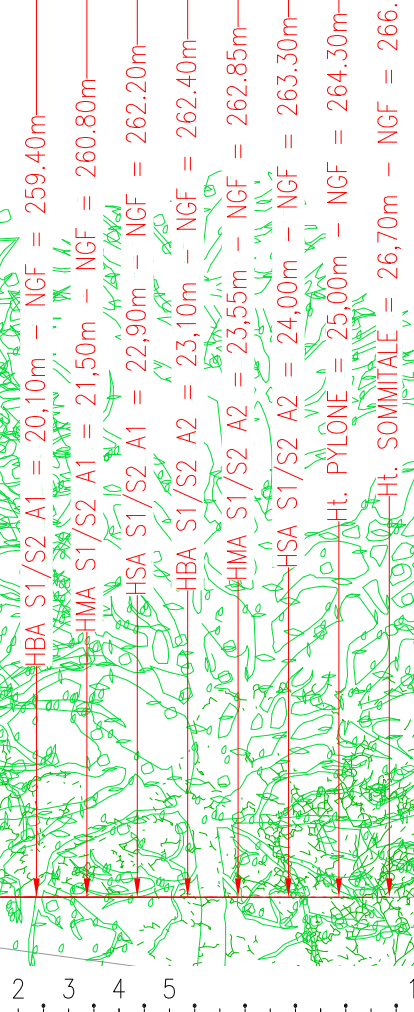 HBA S1/S2 A1 = 20,10m - NGF = 259.40m
HMA S1/S2 A1 = 21,50m - NGF = 260.80m
HSA S1/S2 A1 = 22,90m - NGF = 262.20m
HBA S1/S2 A2 = 23,10m - NGF = 262.40m
HMA S1/S2 A2 = 23,55m - NGF = 262.85m
HSA S1/S2 A2 = 24,00m - NGF = 263.30m
Ht. PYLONE = 25,00m - NGF = 264.30m
Ht. SOMMITALE = 26,70m - NGF = 266.
2 3 4 5 1